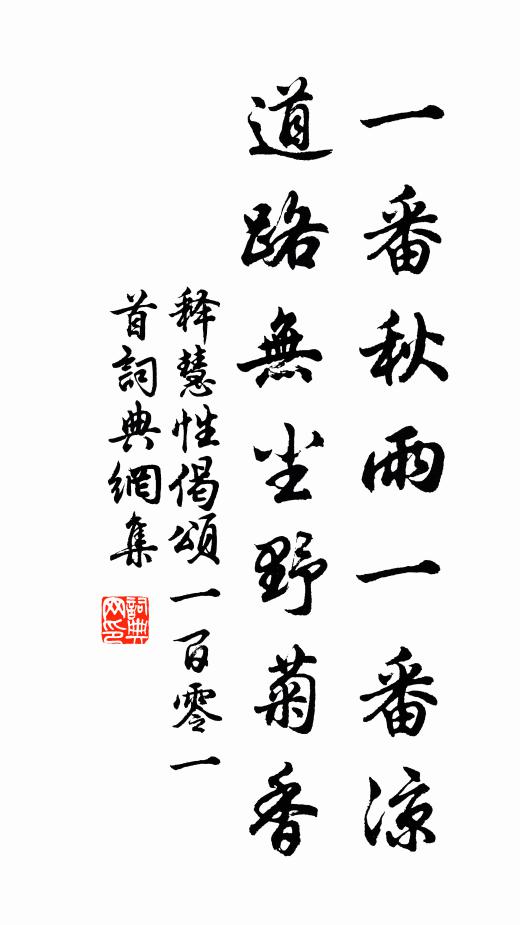 一番秋雨一番凉
道路無尘野菊香
释慧性偈頌一百零一
首詞典網集
詞典
网印